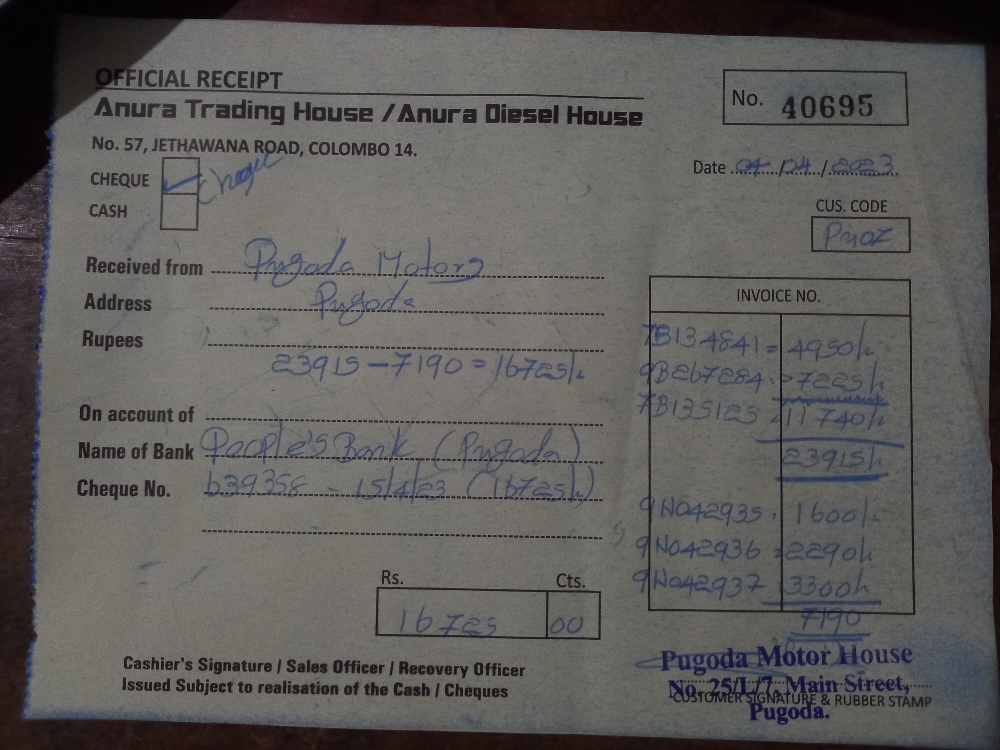 OFFICIAL RECEIPT
Anura Trading House / Anura Diesel House
No. 57, JETHAWANA ROAD, COLOMBO 14.
No. 40695
Date 04/04/2023
CHEQUE Cheque
CASH
CUS. CODE
Received from Pugoda Motors
Address Pugoda
Rupees
23915 - 7190 = 16725/-
On account of
Name of Bank People's Bank (Pugoda)
Cheque No. 639358 - 15/4/23 (16725/-)
Rs. Cts.
16725 00
INVOICE NO.
7B134841 = 4950/-
9B267284 = 7225/-
7B135125 = 11740/-
23915/-
9N042935 = 1600/-
9N042936 = 2290/-
9N042937 = 3300/-
7190
Cashier's Signature / Sales Officer / Recovery Officer
Issued Subject to realisation of the Cash / Cheques
Pugoda Motor House
No. 25/L/7, Main Street,
CUSTOMER SIGNATURE & RUBBER STAMP
Pugoda.